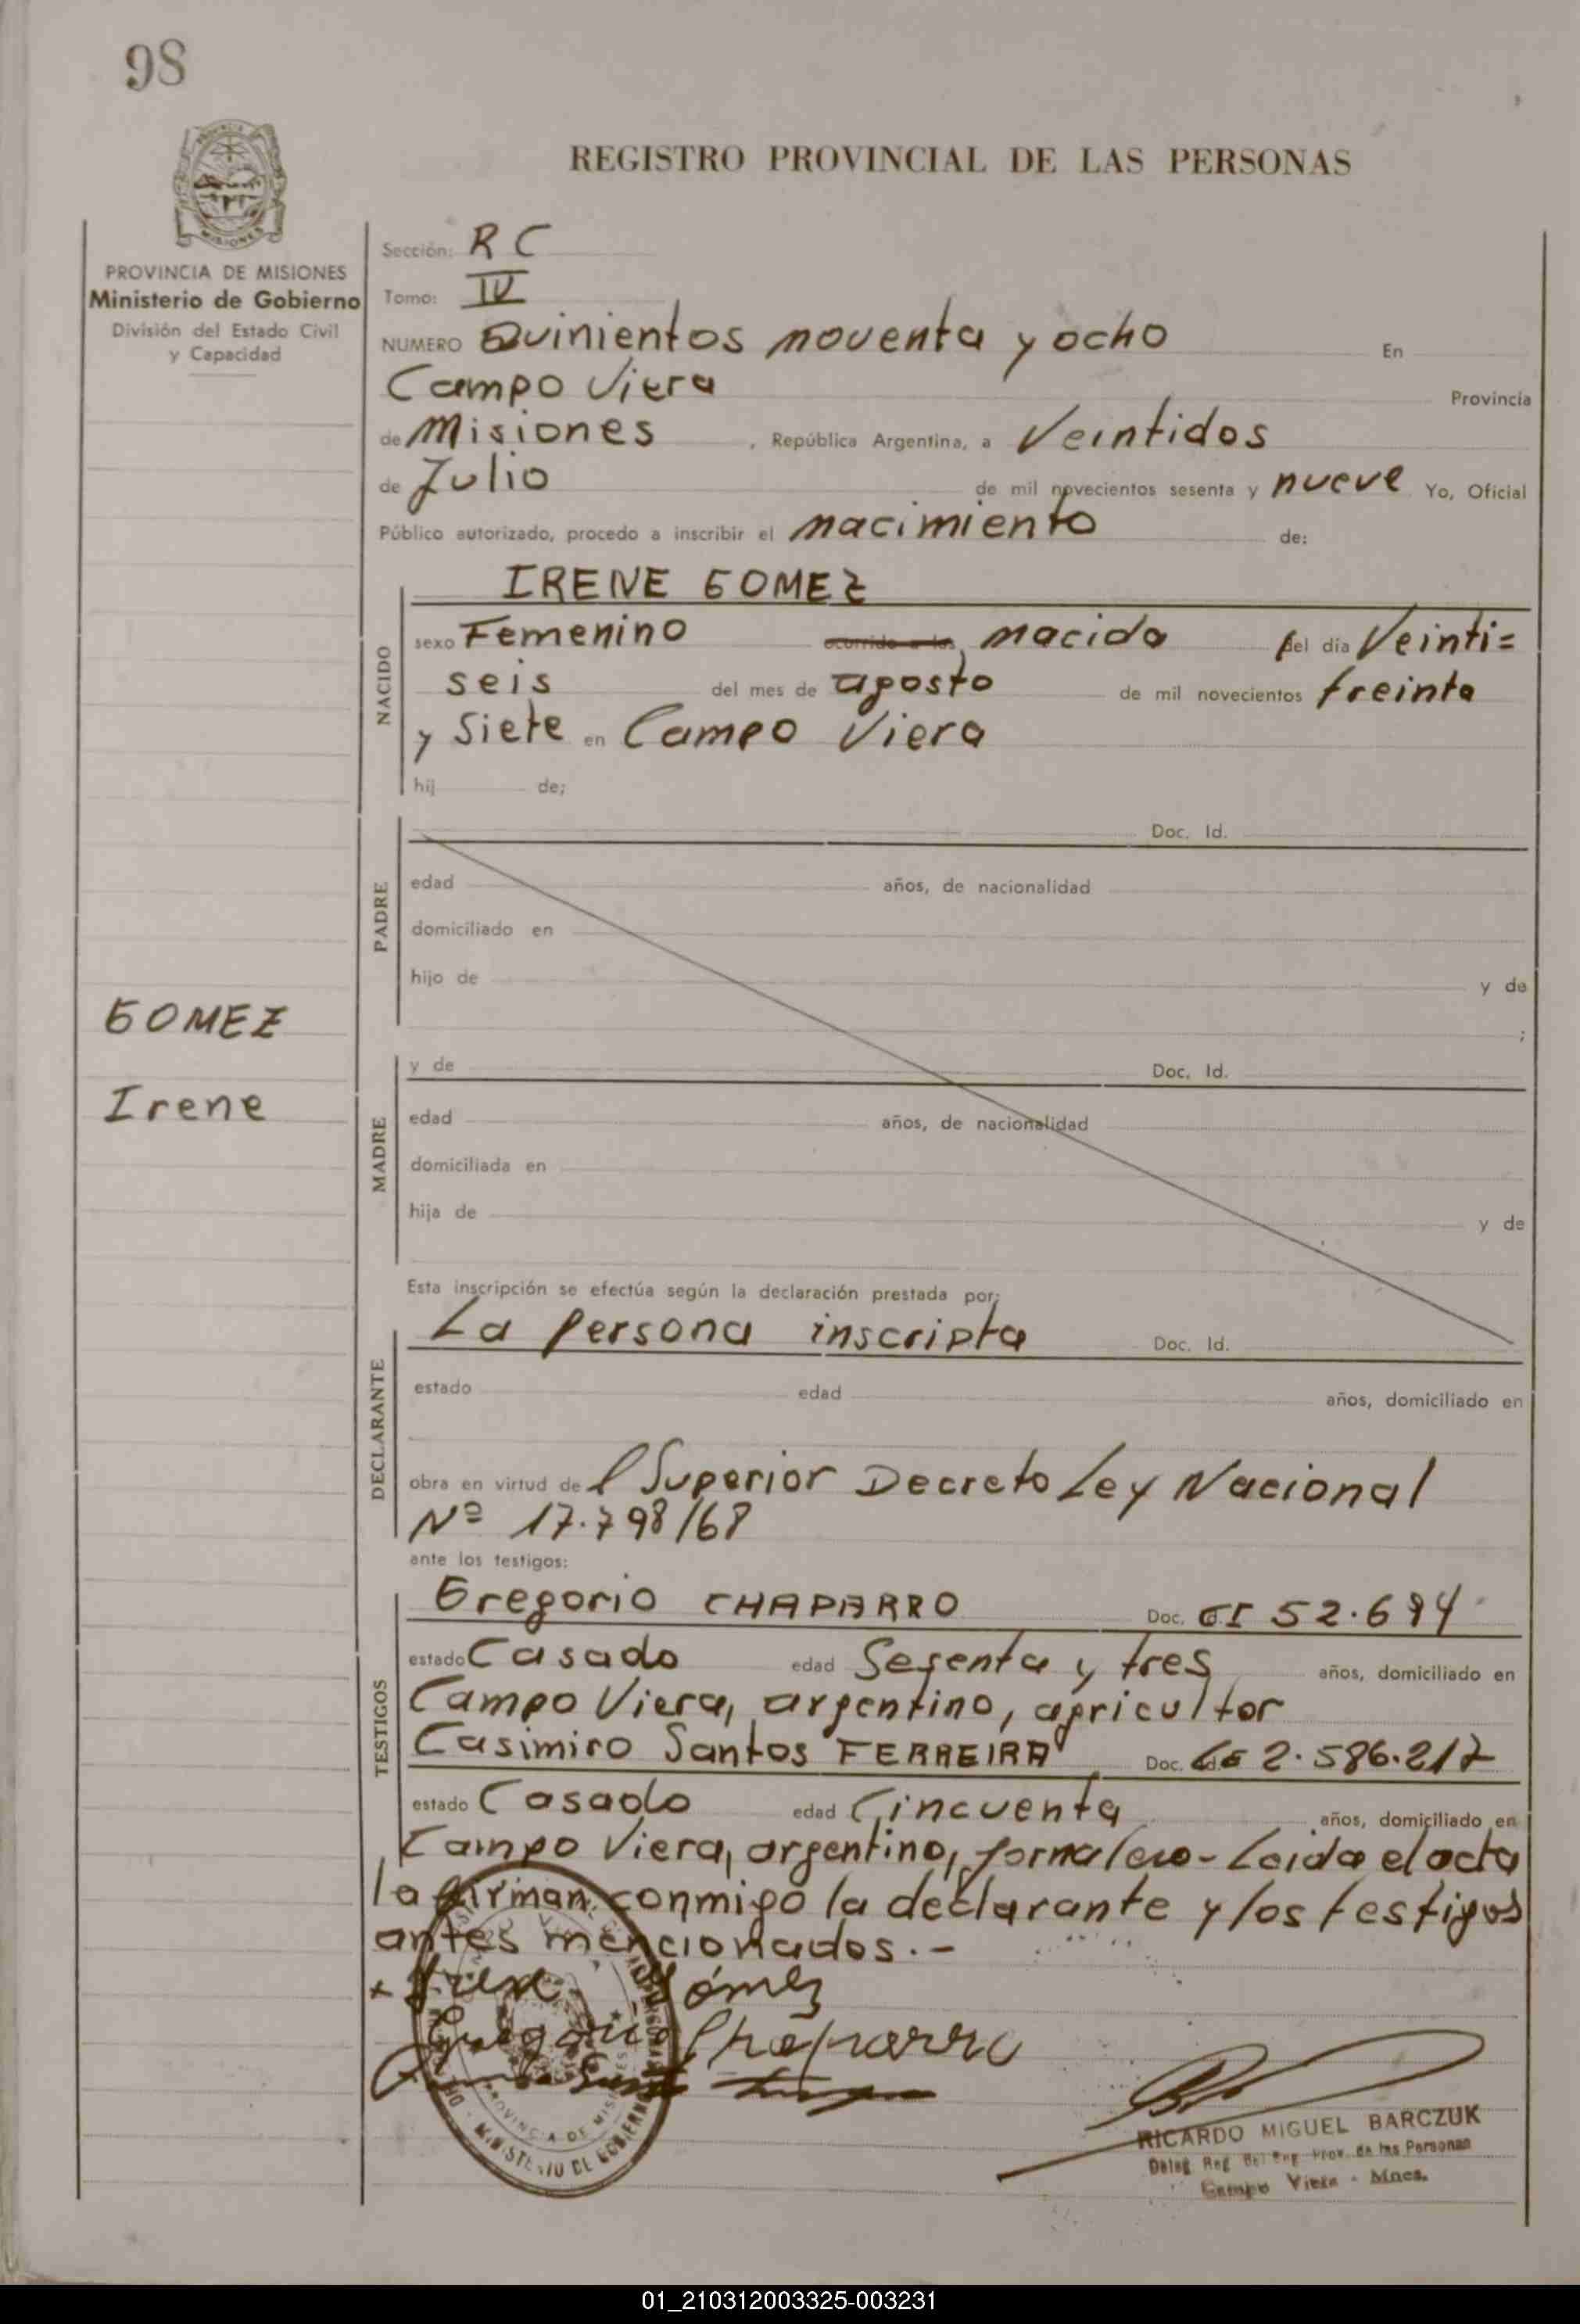 98
REGISTRO PROVINCIAL DE LAS PERSONAS
PROVINCIA DE MISIONES
Ministerio de Gobierno
División del Estado Civil
y Capacidad
Sección: R C
Tomo: IV
NUMERO Quinientos noventa y ocho En
Campo Viera Provincia
de Misiones , República Argentina, a Veintidos
de Julio de mil novecientos sesenta y nueve Yo, Oficial
Público autorizado, procedo a inscribir el nacimiento de:
NACIDO
IRENE GOMEZ
sexo Femenino ocurrido a las, nacida el día Veinti=
seis del mes de agosto de mil novecientos treinta
y siete en Campo Viera
hij de;
PADRE
Doc. Id.
edad años, de nacionalidad
domiciliado en
hijo de y de
;
GOMEZ
Irene
MADRE
y de Doc. Id.
edad años, de nacionalidad
domiciliada en
hija de y de
Esta inscripción se efectúa según la declaración prestada por:
DECLARANTE
La persona inscripta Doc. Id.
estado edad años, domiciliado en
obra en virtud de l Superior Decreto Ley Nacional
Nº 17.798/68
ante los testigos:
TESTIGOS
Gregorio CHAPARRO Doc. CI 52.694
estado Casado edad Sesenta y tres años, domiciliado en
Campo Viera, argentino, agricultor
Casimiro Santos FERREIRA Doc. LE 2.586.217
estado Casado edad Cincuenta años, domiciliado en
Campo Viera, argentino, jornalero - Leida el acta
la firman conmigo la declarante y los testigos
antes mencionados.-
x Irene Gómez
Gregorio Chaparro
MINISTERIO DE GOBIERNO
PROVINCIA DE MISIONES
RICARDO MIGUEL BARCZUK
Deleg. Reg. del Reg. Prov. de las Personas
Campo Viera - Mnes.
01_210312003325-003231